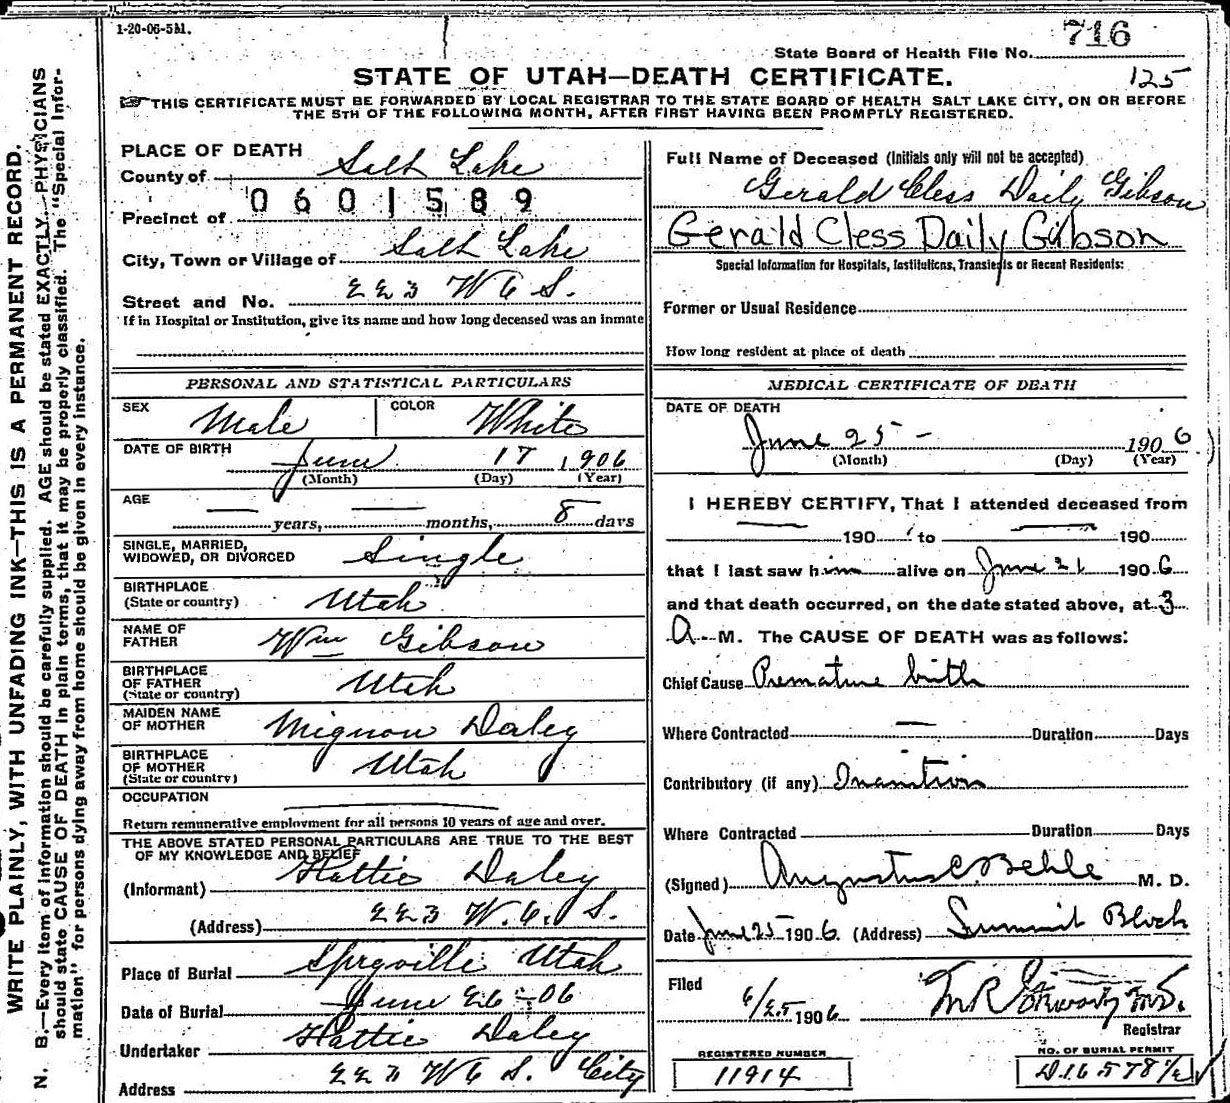 1-20-06-5M.
716
State Board of Health File No.
STATE OF UTAH—DEATH CERTIFICATE.
125
THIS CERTIFICATE MUST BE FORWARDED BY LOCAL REGISTRAR TO THE STATE BOARD OF HEALTH SALT LAKE CITY, ON OR BEFORE
THE 5TH OF THE FOLLOWING MONTH, AFTER FIRST HAVING BEEN PROMPTLY REGISTERED.
WRITE PLAINLY, WITH UNFADING INK—THIS IS A PERMANENT RECORD.
N. B.—Every item of information should be carefully supplied. AGE should be stated EXACTLY. PHYSICIANS
should state CAUSE OF DEATH in plain terms, that it may be properly classified. The "Special Infor-
mation" for persons dying away from home should be given in every instance.
PLACE OF DEATH
County of Salt Lake
0601589
Precinct of
City, Town or Village of Salt Lake
Street and No. 223 W 6 S.
If in Hospital or Institution, give its name and how long deceased was an inmate
PERSONAL AND STATISTICAL PARTICULARS
SEX Male COLOR White
DATE OF BIRTH June 17 1906
(Month) (Day) (Year)
AGE
— years, — months, 8 days
SINGLE, MARRIED,
WIDOWED, OR DIVORCED Single
BIRTHPLACE
(State or country) Utah
NAME OF
FATHER Wm Gibson
BIRTHPLACE
OF FATHER
(State or country) Utah
MAIDEN NAME
OF MOTHER Mignon Daley
BIRTHPLACE
OF MOTHER
(State or country) Utah
OCCUPATION
Return remunerative employment for all persons 10 years of age and over.
THE ABOVE STATED PERSONAL PARTICULARS ARE TRUE TO THE BEST
OF MY KNOWLEDGE AND BELIEF
(Informant) Hattie Daley
(Address) 223 W. 6. S.
Place of Burial Spryville Utah
Date of Burial June 26 - 06
Undertaker Hattie Daley
Address 223 W 6 S. City
Full Name of Deceased (Initials only will not be accepted)
Gerald Cless Daily Gibson
Gerald Cless Daily Gibson
Special Information for Hospitals, Institutions, Transients or Recent Residents:
Former or Usual Residence
How long resident at place of death
MEDICAL CERTIFICATE OF DEATH
DATE OF DEATH
June 25 - 1906
(Month) (Day) (Year)
I HEREBY CERTIFY, That I attended deceased from
— 190 to — 190
that I last saw him alive on June 21 1906
and that death occurred, on the date stated above, at 3
A M. The CAUSE OF DEATH was as follows:
Chief Cause Premature birth
Where Contracted — Duration Days
Contributory (if any) Inanition
Where Contracted Duration Days
(Signed) Augustus C Behle M. D.
Date June 25 1906. (Address) Summit Block
Filed
6/25 1906
M.D.
Registrar
REGISTERED NUMBER
11914
NO. OF BURIAL PERMIT